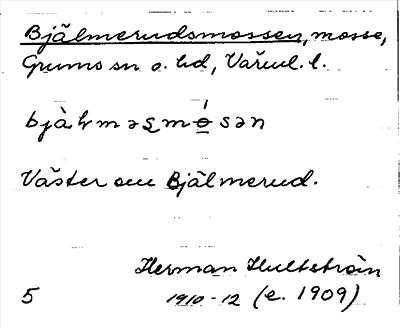 Bjälmerudsmossen, mosse,
Grums sn o. hd, Värml. l.
Väster om Bjälmerud.
Herman Hultström
5 1910-12 (e. 1909)